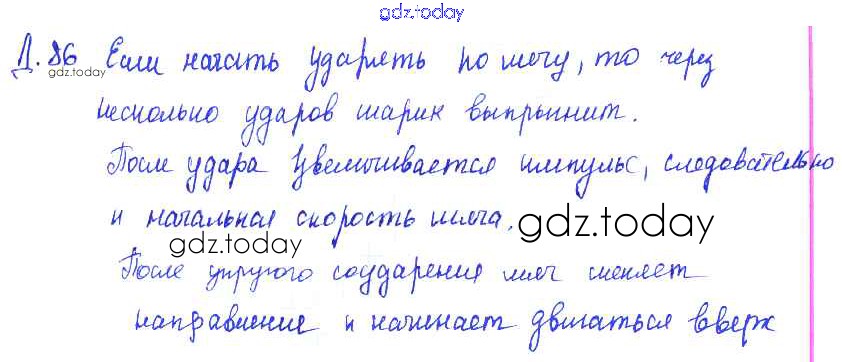 gdz.today
Д.86 Если начать ударять по мечу, то через
gdz.today
несколько ударов шарик выпрыгнит.
После удара увеличивается импульс, следовательно
и начальная скорость мяча.
gdz.today
gdz.today
После упругого соударения мяч меняет
направление и начинает двигаться вверх